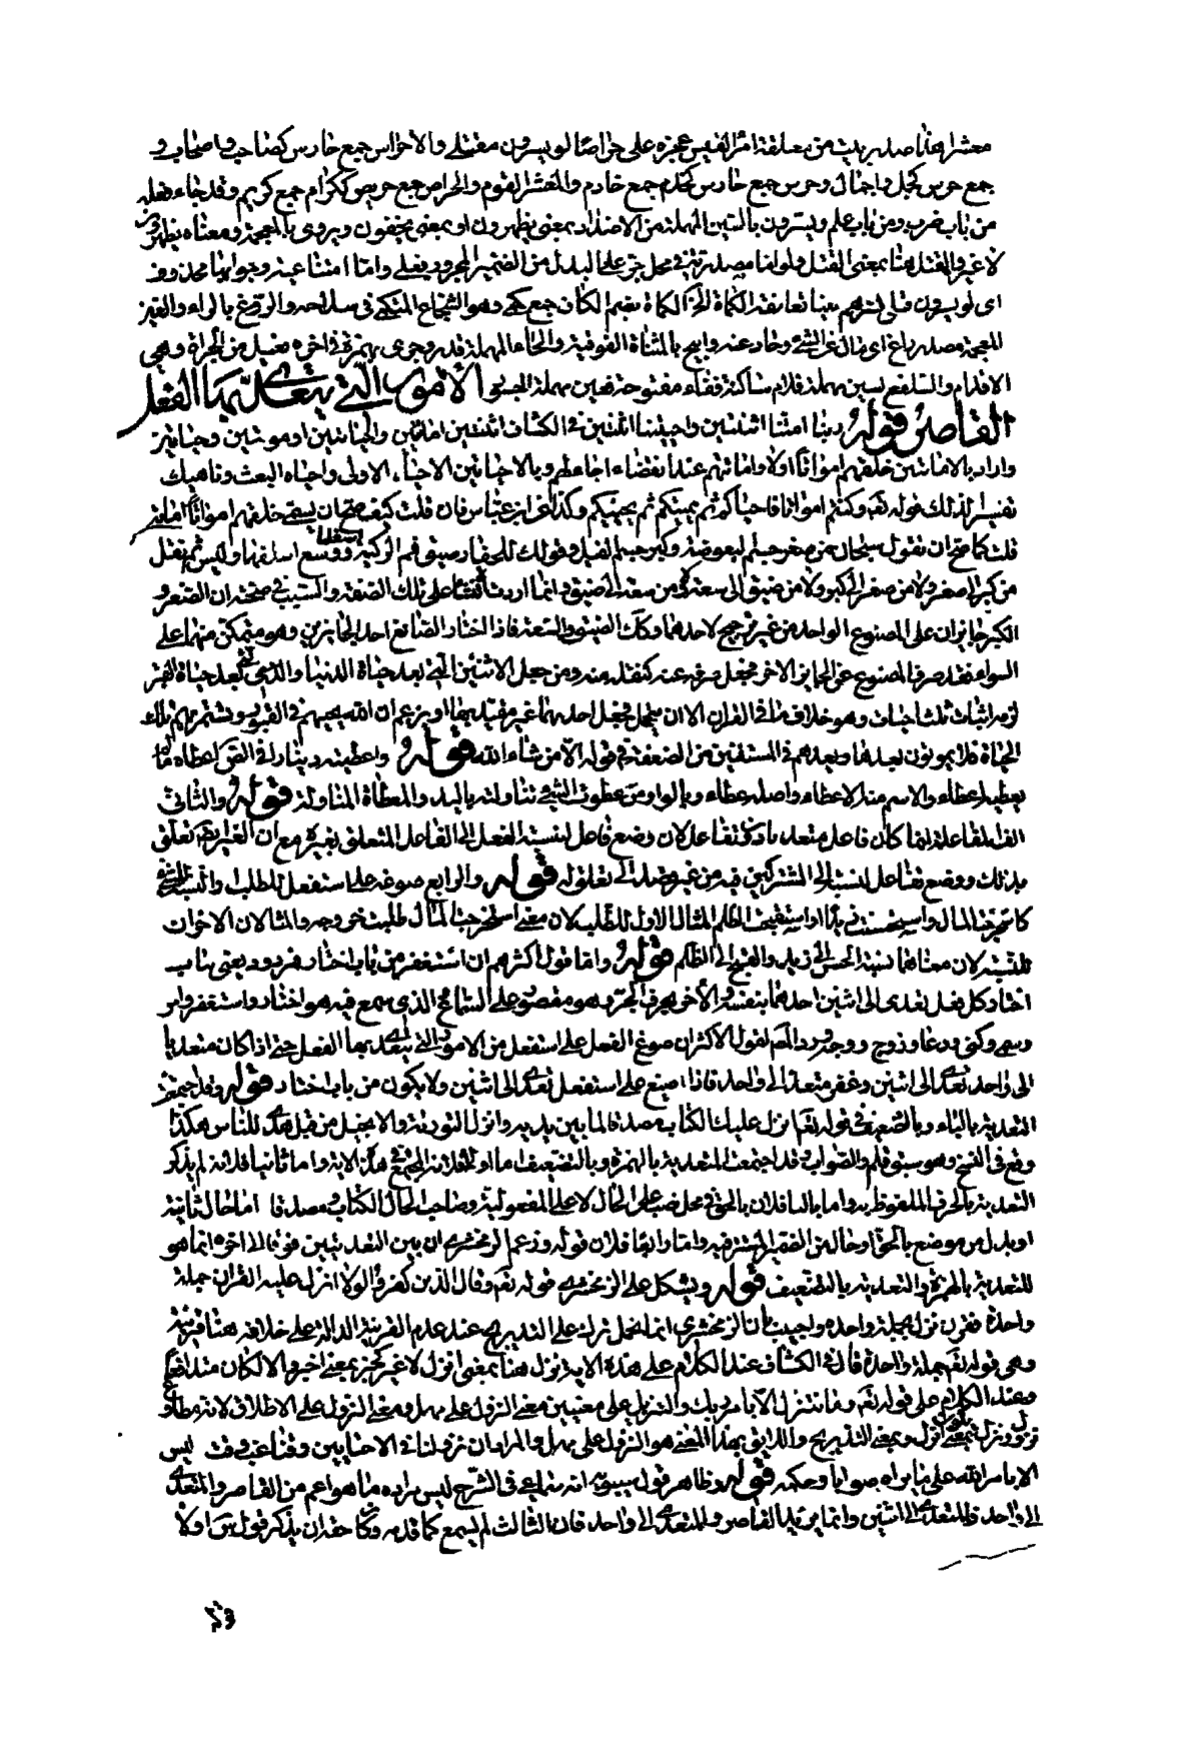 معشرا هذا صدر بيت من معلقة امرئ القيس عجزه على حراصا لو يسرون مقتلي والاحراس جمع حارس كصاحب واصحاب و
جمع حرس كجبل واجبال وحرس جمع حارس كخدم جمع خادم والمعشر القوم والحراص جمع حريص ككرام جمع كريم وقد جاء فعله
من باب ضرب ومن باب علم ويسرون بالسين المهملة من الاضداد بمعنى يظهرون او بمعنى يخفون ويروى بالمعجمة ومعناه يظهرون
لا غير والقتل هنا بمعنى القتل ولو انما مصدرية في محل جر على البدل من الضمير المجرور بعلى واما امتناعية وجوابها محذوف
اى لو يسرون قتلى لسرهم بينا تعانقه الكماة الخ الكماة بضم الكاف جمع كمى وهو الشجاع المتكمى فى سلاحه والروغ بالراء والغين
المعجمة مصدر راغ اى مال عن الشئ وحاد عنه واتيح بالمثناة الفوقية والحاء المهملة قدر وجرى بهمزة في اخره فعيل من الجراة وهى
الاقدام والسلفع بسين مهملة فلام ساكنة ففاء مفتوحة فعين مهملة الجسور الامور التي يتعدى بها الفعل
القاصر قوله ربنا امتنا اثنتين واحييتنا اثنتين فى الكشاف اثنتين اماتتين واحياءتين او موتتين وحياتين
واراد بالاماتتين خلقهم امواتا اولا واماتتهم عند انقضاء اجالهم وبالاحياءتين الاحياء الاولى واحياء البعث وناهيك
تفسيرا لذلك قوله تع وكنتم امواتا فاحياكم ثم يميتكم ثم يحييكم وكذا عن ابن عباس فان قلت كيف صح ان يسمى خلقهم امواتا اماتة
قلت كما صح ان تقول سبحان من صغر جسم البعوضة وكبر جسم الفيل وقولك للحفار ضيق فم الركية ووسع اسفلها وليس ثم نقل
من كبر الى صغر ولا من صغر الى كبر ولا من ضيق الى سعة ولا من سعة الى ضيق وانما اردت الانشاء على تلك الصفة والسبب في صحته ان الصغر و
الكبر جايزان على المصنوع الواحد من غير ترجيح لاحدهما وكذلك الضيق والسعة فاذا اختار الصانع احد الجايزين وهو متمكن منهما على
السواء فقد صرف المصنوع عن الجايز الاخر فجعل صرفه عنه كنقله منه ومن جعل الاثنتين التي بعد حياة الدنيا والتي بعد حياة القبر
لزمه اثبات ثلث احياءات وهو خلاف ما فى القرآن الا ان يتمحل فيجعل احدهما غير معتد بها او يزعم ان الله يحييهم فى القبور ويستمر بهم تلك
الحياة فلا يموتون بعدها ويعدهم في المستثنين من الصعقة فى قوله الا من شاء الله قوله واعطيته دينارا فى القاموس اعطاه
يعطيه اعطاء والاسم منه الاعطاء واصله عطاو بالواو من عطوت الشئ تناولته باليد والمعطاة المناولة قوله والثانى
الف المفاعلة انما كان فاعل متعديا دون تفاعل لان وضع فاعل لنسبة الفعل الى الفاعل المتعلق بغيره مع ان الغير ايضا تعلق
بذلك ووضع تفاعل لنسبته الى المشتركين فيه من غير قصد الى تعلق له قوله والرابع صوغه على استفعل للطلب والنسبة الى الشئ
كاستخرجت المال واستحسنت زيدا واستقبحت الظلم المثال الاول للطلب لان معنى استخرجت المال طلبت خروجه والمثالان الاخران
للنسبة لان معناهما نسبة الحسن الى زيد والقبح الى الظلم قوله واما قول اكثرهم ان استغفر من باب اختار فمردود يعنى بباب
اختار كل فعل تعدى الى اثنين احدهما بنفسه والآخر بحرف الجر وهو مقصور على السماع الذى سمع فيه هو اختار واستغفر وامر
وسمى وكنى ودعا وزوج ووجه رد المص لقول الاكثر ان صوغ الفعل على استفعل من الامور التي يتعدى بها الفعل حتى اذا كان متعديا
الى واحد تعدى الى اثنين وغفر متعد الى واحد فاذا صيغ على استفعل تعدى الى اثنين ولا يكون من باب اختار قوله وقد اجتمعت
التعدية بالباء وبالتضعيف فى قوله تعم نزل عليك الكتاب مصدقا لما بين يديه وانزل التورية والانجيل من قبل هدى للناس هكذا
وقع فى النسخ وهو سبق قلم والصواب وقد اجتمعت التعدية بالهمزة وبالتضعيف اما اولا فلانه المجتمع في هذه الاية واما ثانيا فلانه لم يذكر
التعدية بالحرف الملفوظ به واما بالباء فلان بالحق في محل نصب على الحال لا على المفعولية وصاحب الحال الكتاب ومصدقا اما حال ثانية
او بدل من موضع بالحق او حال من الضمير المستتر فيه واما رابعا فلان قوله وزعم الزمخشري ان بين التعديتين فرقا الى اخره انما هو
للتعدية بالهمزة والتعدية بالتضعيف قوله ويشكل على الزمخشرى قوله تع وقال الذين كفروا لولا نزل عليه القرآن جملة
واحدة فقرن نزل بجملة واحدة واجيب بان الزمخشرى انما يحمل نزل على التدريج عند عدم القرينة الدالة على خلافه وهنا قرينة
وهى قوله تعم جملة واحدة قال فى الكشاف عند الكلام على هذه الاية نزل هنا بمعنى انزل لا غير كخبر بمعنى اخبر والا لكان متدافعا
وعند الكلام على قوله تع وما نتنزل الا بامر ربك والتنزل على معنيين معنى النزول على مهل ومعنى النزول على الاطلاق لانه مطاوع
نزل ونزل يكون بمعنى انزل وبمعنى التدريج واللايق بهذا المعنى هو النزول على مهل والمراد ان نزولنا فى الاحايين وقتا غب وقت ليس
الا بامر الله على ما يراه صوابا وحكمة قوله وظاهر قول سيبويه انه سماعى فى الشرح ليس مراده ما هو اعم من القاصر والمتعدى
الى واحد والمتعدى الى اثنين وانما يريد القاصر والمتعدى الى واحد فان الثالث لم يسمع كما قدمه وكان حقه ان يذكر قول س اولا